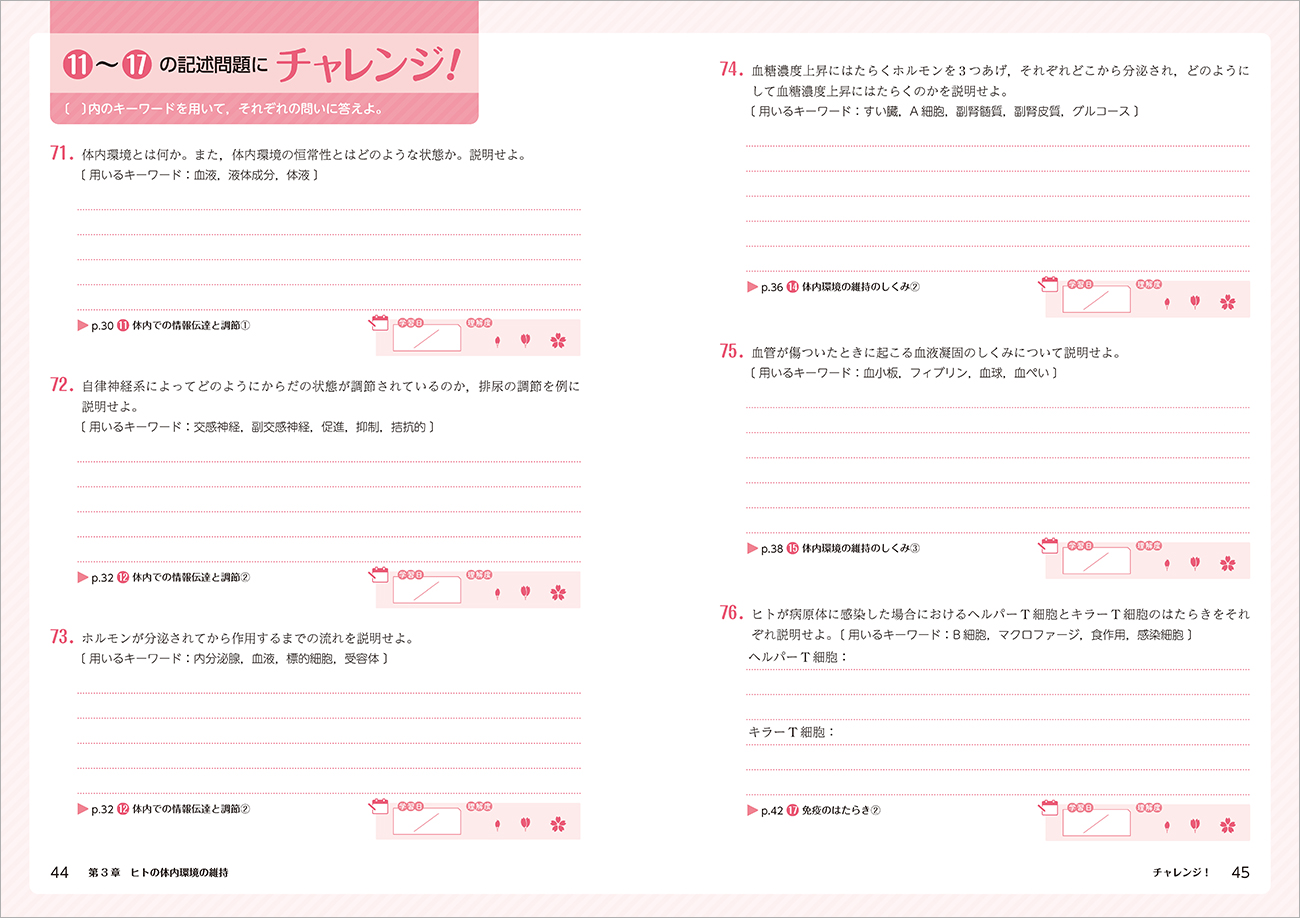 ⑪～⑰の記述問題にチャレンジ！
〔　〕内のキーワードを用いて，それぞれの問いに答えよ。
71. 体内環境とは何か。また，体内環境の恒常性とはどのような状態か。説明せよ。
〔 用いるキーワード：血液，液体成分，体液 〕
▶p.30 ⑪ 体内での情報伝達と調節①
学習日 理解度
72. 自律神経系によってどのようにからだの状態が調節されているのか，排尿の調節を例に
説明せよ。
〔 用いるキーワード：交感神経，副交感神経，促進，抑制，拮抗的 〕
▶p.32 ⑫ 体内での情報伝達と調節②
学習日 理解度
73. ホルモンが分泌されてから作用するまでの流れを説明せよ。
〔 用いるキーワード：内分泌腺，血液，標的細胞，受容体 〕
▶p.32 ⑫ 体内での情報伝達と調節②
学習日 理解度
44 第３章 ヒトの体内環境の維持
74. 血糖濃度上昇にはたらくホルモンを３つあげ，それぞれどこから分泌され，どのように
して血糖濃度上昇にはたらくのかを説明せよ。
〔 用いるキーワード：すい臓，A 細胞，副腎髄質，副腎皮質，グルコース 〕
▶p.36 ⑭ 体内環境の維持のしくみ②
学習日 理解度
75. 血管が傷ついたときに起こる血液凝固のしくみについて説明せよ。
〔 用いるキーワード：血小板，フィブリン，血球，血ぺい 〕
▶p.38 ⑮ 体内環境の維持のしくみ③
学習日 理解度
76. ヒトが病原体に感染した場合におけるヘルパーＴ細胞とキラーＴ細胞のはたらきをそれ
ぞれ説明せよ。〔 用いるキーワード：B 細胞，マクロファージ，食作用，感染細胞 〕
ヘルパーＴ細胞：
キラーＴ細胞：
▶p.42 ⑰ 免疫のはたらき②
学習日 理解度
チャレンジ！ 45